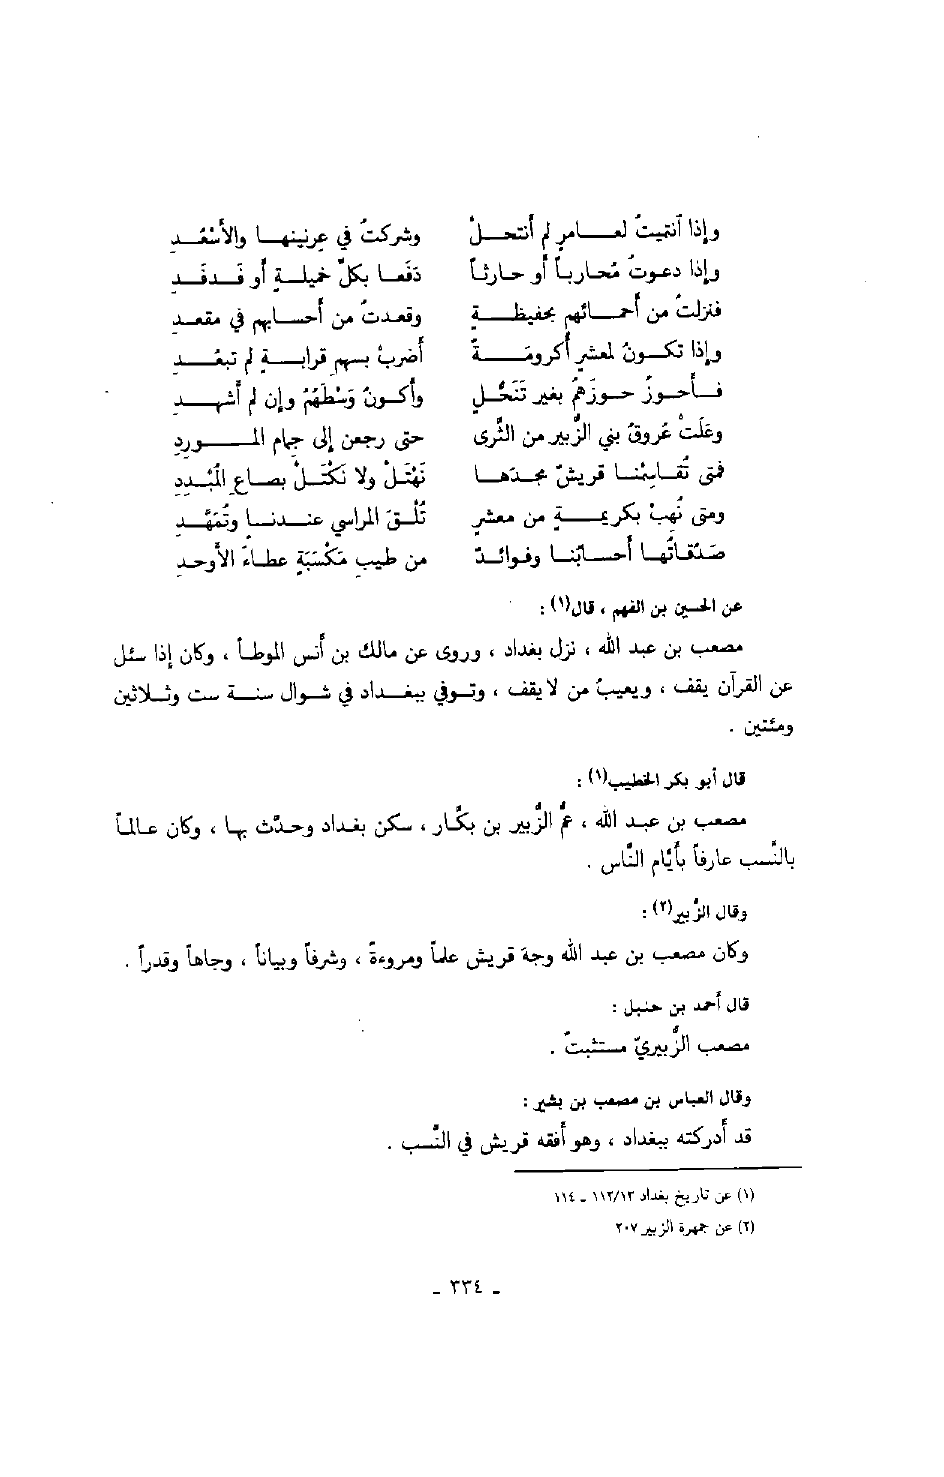 وإذا آنتميتُ لعــامرٍ لم أنتحــلْ وشركتُ في عرنينهـا والأسْعُــدِ
وإذا دعوتُ مُحارباً أو حارثاً دَفَعـا بكلِّ خميلـةٍ أو فَـدفَـدِ
فنزلتُ من أحمـائهم بحفيظــةٍ وقعدتُ من أحسـابهم في مقعـدِ
وإذا تكـونُ لمعشرٍ أكرومَــةٌ أضربْ بسهمِ قرابــةٍ لم تبعُــدِ
فـأحوزُ حـوزَهمُ بغير تَنَحُّلٍ وأكـونُ وَسْطَهُمُ وإن لم أشهــدِ
وعلَتْ عُروقُ بني الزُّبير من الثَّرى حتى رجعن إلى جمام المـــوردِ
فمتى تُقـايسْنـا قريشٌ مجـدَهـا نَهْتَلْ ولا نَكْتَـلْ بصـاعِ المُبْـددِ
ومتى نُهِبْ بكريمــةٍ من معشرٍ تُلْـقَ المراسي عنـدنـا وتُمَهَّـدِ
صَدُقاتُهـا أحسـابُنـا وفوائـدٌ من طيبِ مَكْسَبَةٍ عطـاءَ الأوحـدِ
عن الحسين بن الفهم ، قال(١) :
مصعب بن عبد الله ، نزل بغداد ، وروى عن مالك بن أنس الموطـأ ، وكان إذا سئل
عن القرآن يقف ، ويعيبُ من لا يقف ، وتـوفي ببغـداد في شـوال سنـة ست وثـلاثين
ومئتين .
قال أبو بكر الخطيب(١) :
مصعب بن عبـد الله ، عمُّ الزُّبير بن بكَّار ، سكن بغداد وحدَّث بها ، وكان عـالماً
بالنَّسب عارفاً بأيَّام النَّاس .
وقال الزُّبير(٢) :
وكان مصعب بن عبد الله وجهَ قريش علماً ومروءةً ، وشرفاً وبياناً ، وجاهاً وقدراً .
قال أحمد بن حنبل :
مصعب الزُّبيريّ مستثبتٌ .
وقال العباس بن مصعب بن بشير :
قد أدركته ببغداد ، وهو أفقه قريش في النَّسب .
(١) عن تاريخ بغداد ١١٢/١٣ ـ ١١٤
(٢) عن جمهرة الزبير ٢٠٧
ـ ٣٣٤ ـ